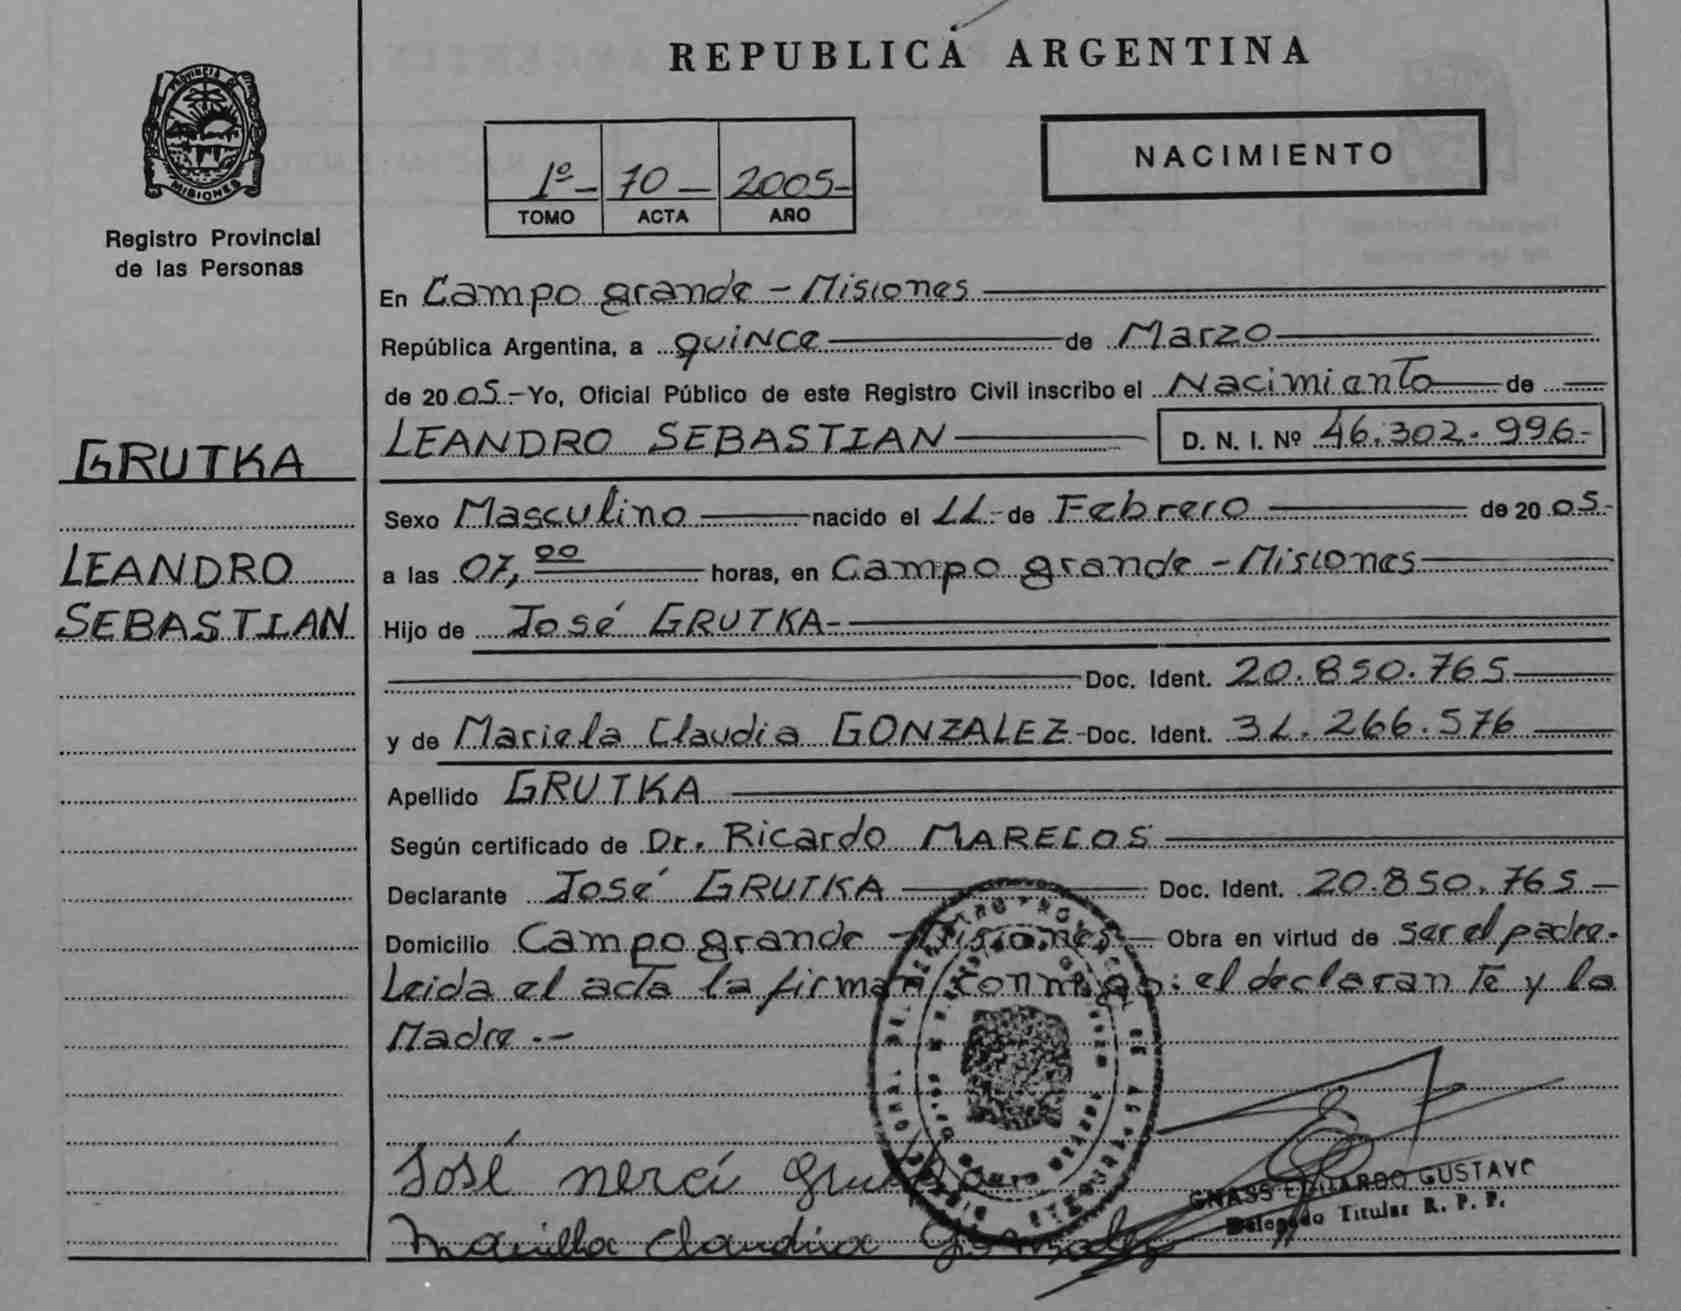 REPUBLICA ARGENTINA
PROVINCIA DE
MISIONES
Registro Provincial
de las Personas
1º- 70- 2005-
TOMO ACTA AÑO
NACIMIENTO
En Campo grande - Misiones
República Argentina, a quince de Marzo
de 2005.- Yo, Oficial Público de este Registro Civil inscribo el Nacimianto de
GRUTKA
LEANDRO SEBASTIAN D. N. I. Nº 46.302.996-
Sexo Masculino nacido el 11- de Febrero de 2005-
LEANDRO
a las 07,00 horas, en Campo grande - Misiones
SEBASTIAN
Hijo de José GRUTKA-
Doc. Ident. 20.850.765
y de Mariela Claudia GONZALEZ- Doc. Ident. 31.266.576
Apellido GRUTKA
Según certificado de Dr. Ricardo MARECOS
Declarante José GRUTKA Doc. Ident. 20.850.765-
Domicilio Campo grande - Misiones - Obra en virtud de ser el padre.
Leida el acta la firman conmigo: el declarante y la
Madre.-
José nerci grutka
Claudia Gonzalez
GNASS EDUARDO GUSTAVO
Delegado Titular R. P. P.